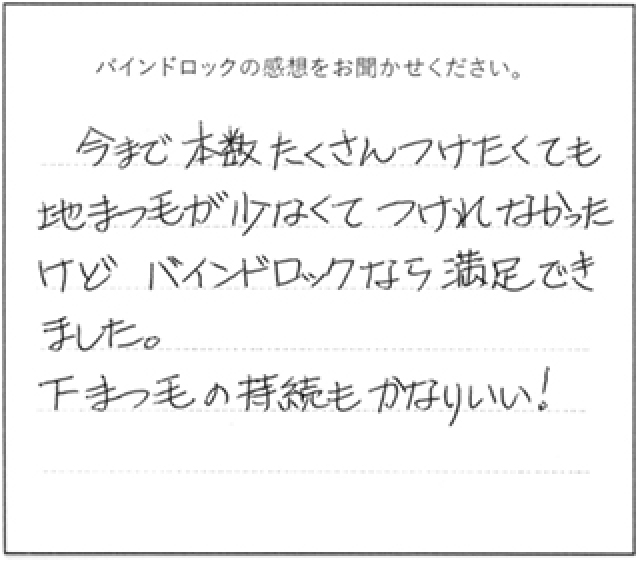 バインドロックの感想をお聞かせください。
今まで本数たくさんつけたくても
地まつ毛が少なくてつけれなかった
けど バインドロックなら満足でき
ました。
下まつ毛の持続もかなりいい!